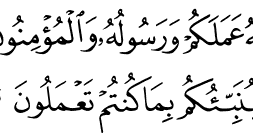 عَمَلَكُمْ وَرَسُولُهُۥ وَٱلْمُؤْمِنُونَ
فَيُنَبِّئُكُم بِمَا كُنتُمْ تَعْمَلُونَ